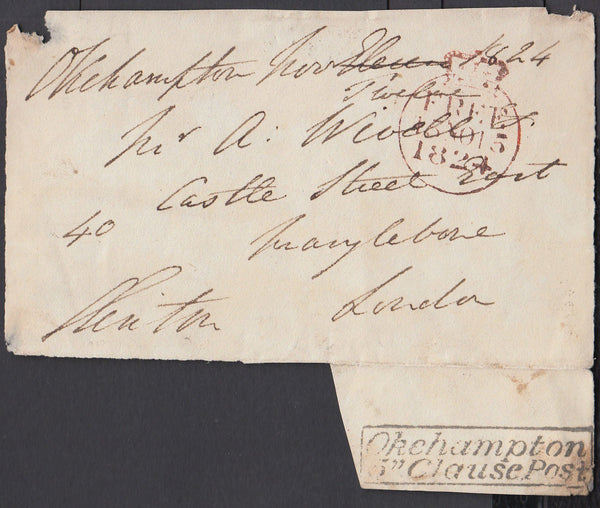 Okehampton Nov Eleven 1824
Twelve
Mr A: Wivell
Castle Street East
40 Marylebone
London
FREE
15 NO 15
1824
Okehampton
5" Clause Post